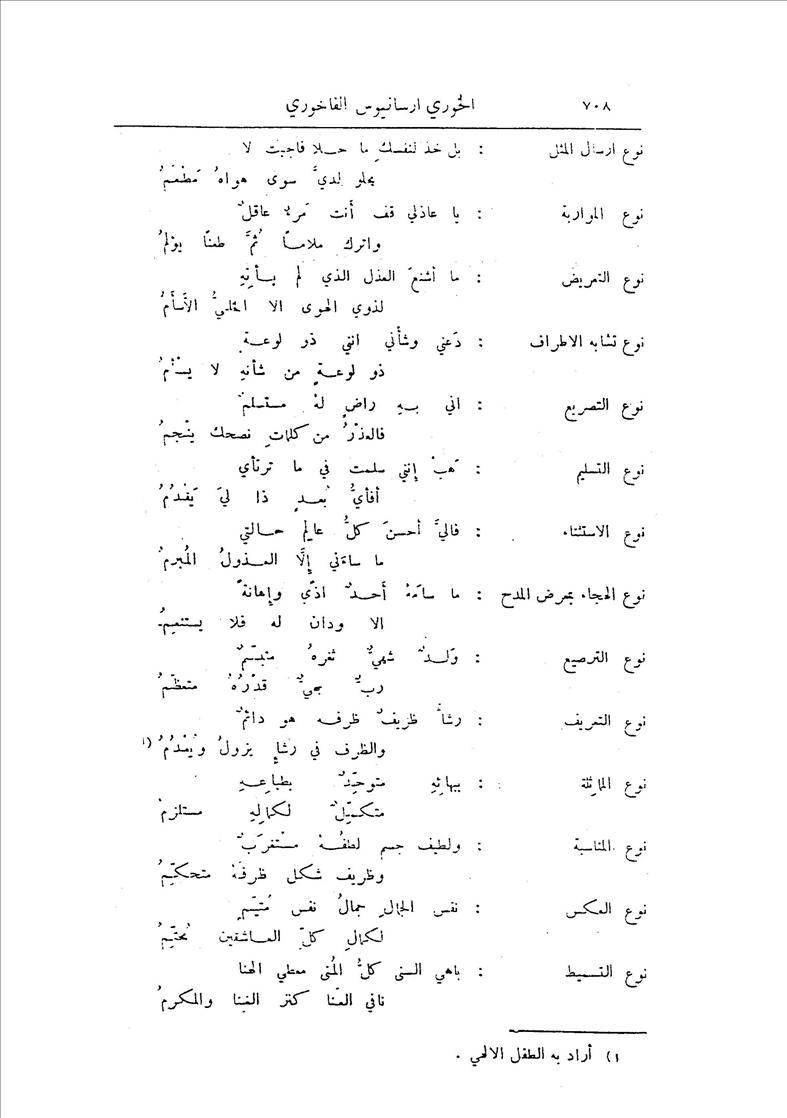 ٧٠٨ الخوري ارسانيوس الفاخوري
نوع ارسال المثل : بل خذ لنفسك ما حـلا فاجبت لا
يحلو لديَّ سوى هواهُ مَطْعَمُ
نوع المواربة : يا عاذلي قف أنت مَرءٌ عاقلٌ
واترك ملامـاً ثُمَّ طعنًا يؤلمُ
نوع التعريض : ما أشنعَ العذل الذي لم يـأتِهِ
لذوي الهوى الا الخليُّ الأَسأَمُ
نوع تشابه الاطراف : دَعني وشأْني انني ذو لوعـةٍ
ذو لوعـةٍ من شأنهِ لا يسْأمُ
نوع التصريع : اني بـهِ راضٍ لهُ مستسلمٌ
فالعذرُ من كلمات نصحك ينجمُ
نوع التسليم : هَبْ إنني سلمت في ما ترتأي
أفأيُّ بُعـدٍ ذا ليَ يَقْدُمُ
نوع الاستثناء : فاليَّ أحسنَ كلُّ عالمِ حـالتي
ما ساءَني إلَّا العـذولُ المُبرمُ
نوع الهجاء بمعرض المدح : ما سامَهُ أحـدٌ اذًى وإهانةً
الا ودان له فلا يستنعمُ
نوع الترصيع : وَلـدٌ شهيٌّ ثغرهُ متبسّمٌ
ربٌّ بهيٌّ قدْرُهُ متعظّمُ
نوع التعريف : رشأٌ ظريفٌ ظرفه هو دائمٌ
والظرف في رشإٍ يزولُ ويُعْدَمُ (١
نوع المماثلة : ببهائِهِ متوحّدٌ بطباعـهِ
متكمّلٌ لكمالِهِ مستلزمُ
نوع المناسبة : ولطيف جسم لطفُهُ مستغرَبٌ
وظريف شكل ظرفهُ متحكّمُ
نوع العكس : نفس الجمالِ جمالُ نفس مُتيّمٍ
لكمالِ كلّ العـاشقين مُحتَّمُ
نوع التسميط : باهي السنى كلُّ المُنى معطي الهنا
نافي العنا كنز الغنا والمكرمُ
١) أراد به الطفل الالهي .